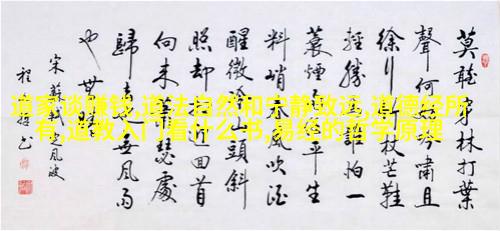 道家谈赚钱,道法自然和宁静致远,道德经所
有,道教入门看什么书,易经的哲学原理
莫聽穿林打葉
聲何妨吟嘯且
徐行竹杖芒鞋
輕勝馬誰怕一
蓑煙雨任平生
料峭春風吹酒
醒微冷山頭斜
照却相迎回首
向來蕭瑟處
歸去也無風雨
也無晴
宋蘇軾定風波
程書